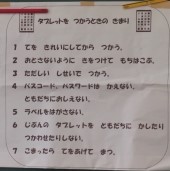 タブレットを つかうときの きまり
1 てを きれいにしてから つかう。
2 おとさないように きをつけて もちはこぶ。
3 ただしい しせいで つかう。
4 パスコード、パスワードは かえない。
ともだちにおしえない。
5 ラベルをはがさない。
6 じぶんの タブレットを ともだちに かしたり
つかわせたりしない。
7 こまったら てをあげて まつ。